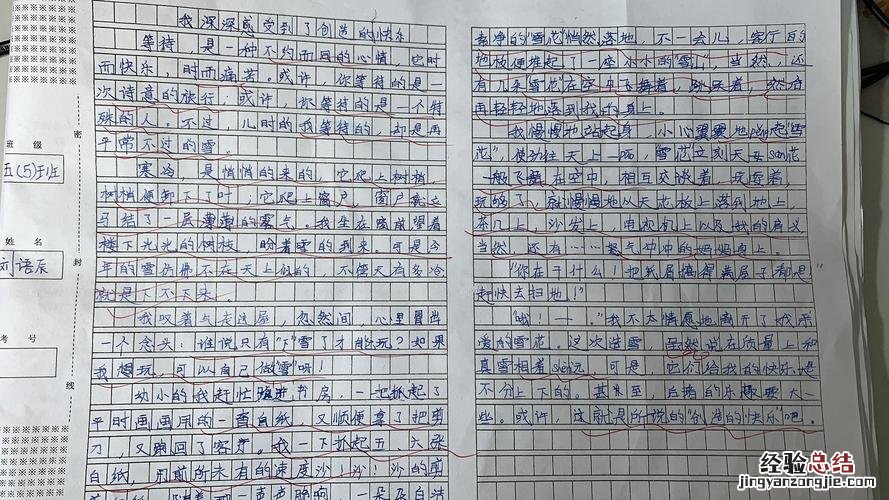 我深深感受到了创造的快乐
等待，是一种不约而同的心情，它时
而快乐，时而痛苦。或许，你等待的是一
次诗意的旅行；或许，你等待的是一个特
殊的人。不过，儿时的我等待的，却是再
平常不过的雪。
寒冷，是悄悄的来的，它爬上树梢，
树梢便卸下了叶；它爬上窗户，窗户
马结了一层薄薄的雾气。我坐在窗前望着
楼下光光的树枝，盼着雪的到来，可是今
年的雪仿佛不在天上似的，不管天有多冷
就是下不下来。
我叹着气走进屋，忽然间，心里冒出
一个念头：谁说只有"下"雪了才能玩？如果
我想玩，可以自己"做雪"呀！
幼小的我赶忙蹦进书房，一把抓起了
平时画画用的一沓白纸，又顺便拿了把剪
刀，又跑回了客厅。我一下扒起五、六张
白纸，用前所未有的速度沙！沙！沙的剪
一声声脆响，一朵朵白洁
素净的"雪花"悄然落地，不一会儿，客厅的
地板便堆起了一座小小的"雪山"，当然，还
有几朵"雪花"在空中飞舞着，跳跃着，然后
再轻轻地落到我的身上。
我慢慢地站起身，小心翼翼地peng起"雪
花"，使劲往天上一po，"雪花"立刻天女san花
一般飞舞在空中，相互交谈着，玩耍着，
玩够了，就慢慢地从天花板上落到地上，
茶几上，沙发上，电视机上以及我的肩
当然，还有……怒气冲冲的妈妈身上。
"你在干什么！把纸屑搞得满屋子都是"
赶快去扫地！"
"哦！——。"我不太情愿地离开了我亲
爱的雪花。这次造雪，虽然说在质量上和
真雪相差shen远，可是，它们给我的快乐是
不分上下的。甚至，自造的乐趣要大一
些。或许，这就是所说的"创造的快乐"吧。
班级
五(5)班
姓名
刘语辰
考号
密
封
线
经验总结
jingyanzongjie.com